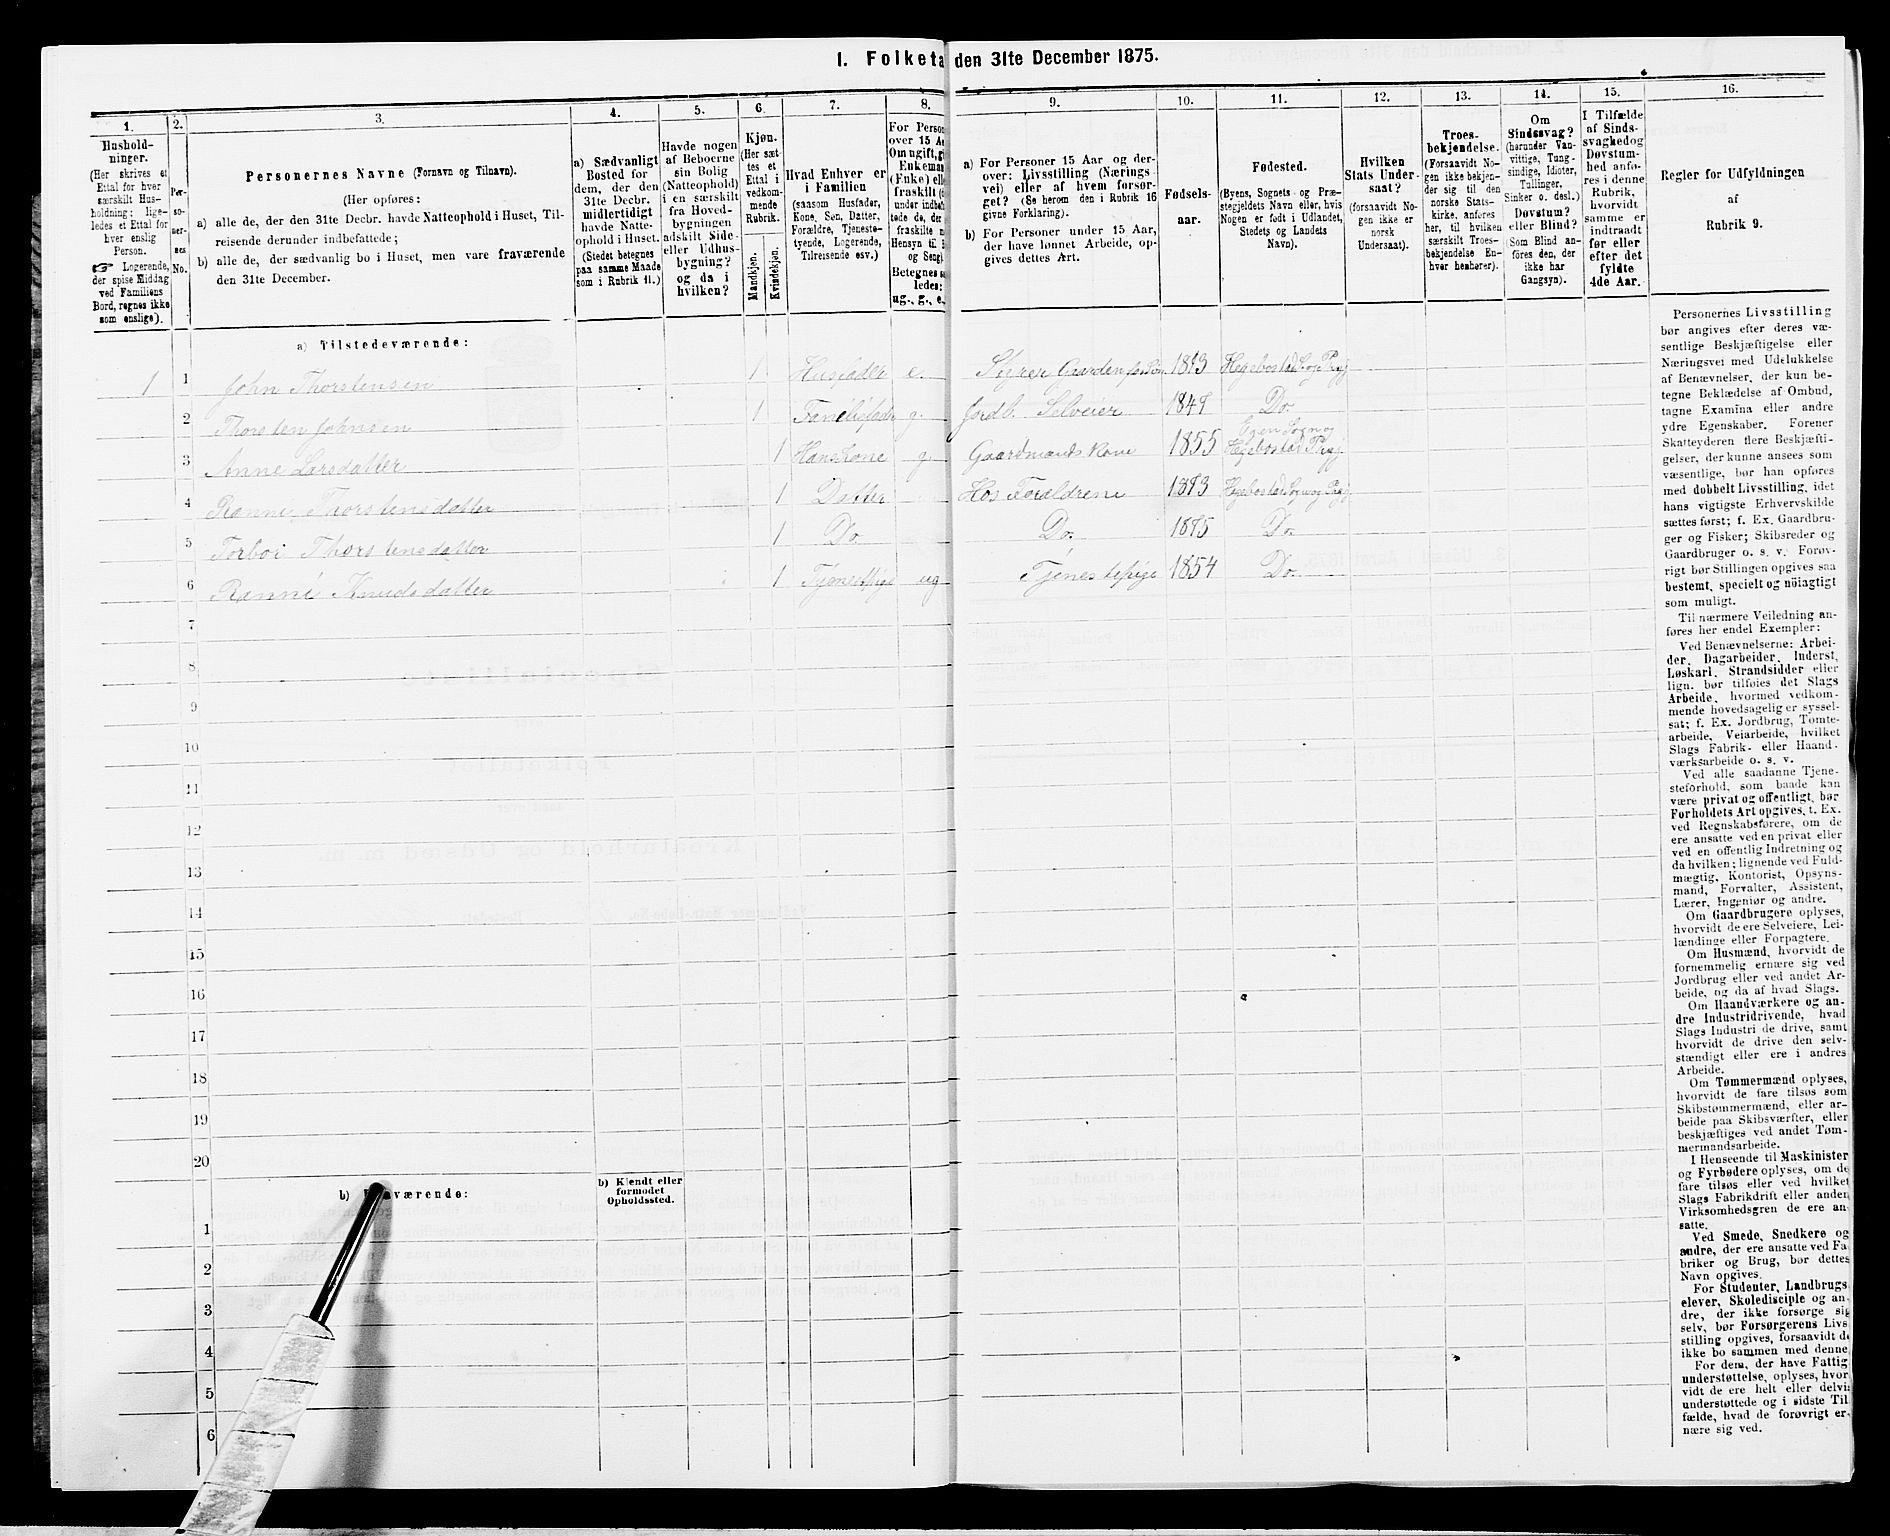 1. Folketa den 31te December 1875.
1.
Hushold-
ninger.
(Her skrives et
Ettal for hver
særskilt Hus-
holdning; lige-
ledes et Ettal for
hver enslig
Person.
☞ Logerende,
der spise Middag
ved Familiens
Bord, regnes ikke
som enslige).
2.
Per-
so-
ner-
nes
No.
3.
Personernes Navne (Fornavn og Tilnavn).
(Her opføres:
a) alle de, der den 31te Decbr. havde Natteophold i Huset, Til-
reisende derunder indbefattede;
b) alle de, der sædvanlig bo i Huset, men vare fraværende
den 31te December.
4.
a) Sædvanligt
Bosted for
dem, der den
31te Decbr.
midlertidigt
havde Natte-
ophold i Huset.
(Stedet betegnes
paa samme Maade
som i Rubrik 11.)
5.
Havde nogen
af Beboerne
sin Bolig
(Natteophold)
i en særskilt
fra Hoved-
bygningen
adskilt Side-
eller Udhus-
bygning?
og da i
hvilken?
6.
Kjøn.
(Her sæt-
tes et
Ettal i
vedkom-
mende
Rubrik.
Mandkjøn.
Kvindekjøn.
7.
Hvad Enhver er
i Familien
(saasom Husfader,
Kone, Søn, Datter,
Forældre, Tjeneste-
tyende, Logerende,
Tilreisende osv.)
8.
For Person
over 15 Aa
Om ugift, gi
Enkeman
(Enke) elle
fraskilt (
under indbe
tede de, der
fraskilte
Hensyn til
og Seng)
Betegnes
ledes:
ug., g., e.,
9.
a) For Personer 15 Aar og der-
over: Livsstilling (Nærings-
vei) eller af hvem forsør-
get? (Se herom den i Rubrik 16
givne Forklaring).
b) For Personer under 15 Aar,
der have lønnet Arbeide, op-
gives dettes Art.
10.
Fødsels-
aar.
11.
Fødested.
(Byens, Sognets og Præ-
stegjeldets Navn eller, hvis
Nogen er født i Udlandet,
Stedets og Landets
Navn).
12.
Hvilken
Stats Under-
saat?
(forsaavidt No-
gen ikke er
norsk
Undersaat).
13.
Troes-
bekjendelse.
(Forsaavidt No-
gen ikke bekjen-
der sig til den
norske Stats-
kirke, anføres
her, til hvilken
særskilt Troes-
bekjendelse En-
hver henhører).
14.
Om
Sindssvag?
(herunder Van-
vittige, Tung-
sindige, Idioter,
Tullinger,
Sinker o. desl.)
Døvstum?
eller Blind?
(Som Blind an-
føres den, der
ikke har
Gangsyn).
15.
I Tilfælde
af Sinds-
svaghed og
Døvstum-
hed anfø-
res i denne
Rubrik,
hvorvidt
samme er
indtraadt
før eller
efter det
fyldte
4de Aar.
16.
Regler for Udfyldningen
af
Rubrik 9.
a) Tilstedeværende:
1 1 John Thorstensen 1 Husfader e. Gaarden 1813
2 Thorsten Johnsen 1 g. Jordb. Selveier 1849 Do.
3 Anne Larsdatter 1 Hans Kone g. Gaardmands Kone 1855 Egen Sogn og
Hegebostad Præj.
4 Ranni Thorstensdatter 1 Datter Hos Forældrene 1873 Hegebostad Sogn og Præj.
5 Torbor Thorstensdatter 1 Do. Do. 1875 Do.
6 Ranni Knudsdatter 1 Tjenestpige ug Tjenestepige 1854 Do.
7
8
9
10
11
12
13
14
15
16
17
18
19
20
b) værende:
b) Kjendt eller
formodet
Opholdssted.
1
2
3
4
5
6
Personernes Livsstilling
bør angives efter deres væ-
sentlige Beskjæftigelse eller
Næringsvei med Udelukkelse
af Benævnelser, der kun be-
tegne Beklædelse af Ombud,
tagne Examina eller andre
ydre Egenskaber. Forener
Skatteyderen flere Beskjæfti-
gelser, der kunne ansees som
væsentlige, bør han opføres
med dobbelt Livsstilling, idet
hans vigtigste Erhvervskilde
sættes først; f. Ex. Gaardbru-
ger og Fisker; Skibsreder og
Gaardbruger o. s. v. Forøv-
rigt bør Stillingen opgives saa
bestemt, specielt og nöiagtigt
som muligt.
Til nærmere Veiledning an-
føres her endel Exempler:
Ved Benævnelserne: Arbei-
der, Dagarbeider, Inderst,
Løskarl, Strandsidder eller
lign. bør tilføies det Slags
Arbeide, hvormed vedkom-
mende hovedsagelig er syssel-
sat; f. Ex. Jordbrug, Tomte-
arbeide, Veiarbeide, hvilket
Slags Fabrik- eller Haand-
værksarbeide o. s. v.
Ved alle saadanne Tjene-
steforhold, som baade kan
være privat og offentligt, bør
Forholdets Art opgives, t. Ex.
ved Regnskabsførere, om de
ere ansatte ved en privat eller
ved en offentlig Indretning og
da hvilken; lignende ved Fuld-
mægtig, Kontorist, Opsyns-
mand, Forvalter, Assistent,
Lærer, Ingeniør og andre.
Om Gaardbrugere oplyses,
hvorvidt de ere Selveiere, Lei-
lændinge eller Forpagtere.
Om Husmænd, hvorvidt de
fornemmelig ernære sig ved
Jordbrug eller ved andet Ar-
beide, og da af hvad Slags.
Om Haandværkere og an-
dre Industridrivende, hvad
Slags Industri de drive, samt
hvorvidt de drive den selv-
stændigt eller ere i andres
Arbeide.
Om Tømmermænd oplyses,
hvorvidt de fare tilsøs som
Skibstømmermænd, eller ar-
beide paa Skibsværfter, eller
beskjæftiges ved andet Tøm-
mermandsarbeide.
I Henseende til Maskinister
og Fyrbødere oplyses, om de
fare tilsøs eller ved hvilket
Slags Fabrikdrift eller anden
Virksomhedsgren de ere an-
satte.
Ved Smede, Snedkere og
andre, der ere ansatte ved Fa
briker og Brug, bør dettes
Navn opgives.
For Studenter, Landbrugs
elever, Skoledisciple og an-
dre, der ikke forsørge sig
selv, bør Forsørgerens Livs
stilling opgives, forsaavidt de
ikke bo sammen med denne.
For dem, der have Fattig
understøttelse, oplyses, hvor
vidt de ere helt eller delvi
understøttede og i sidste Til
fælde, hvad de forøvrigt er-
nære sig ved.